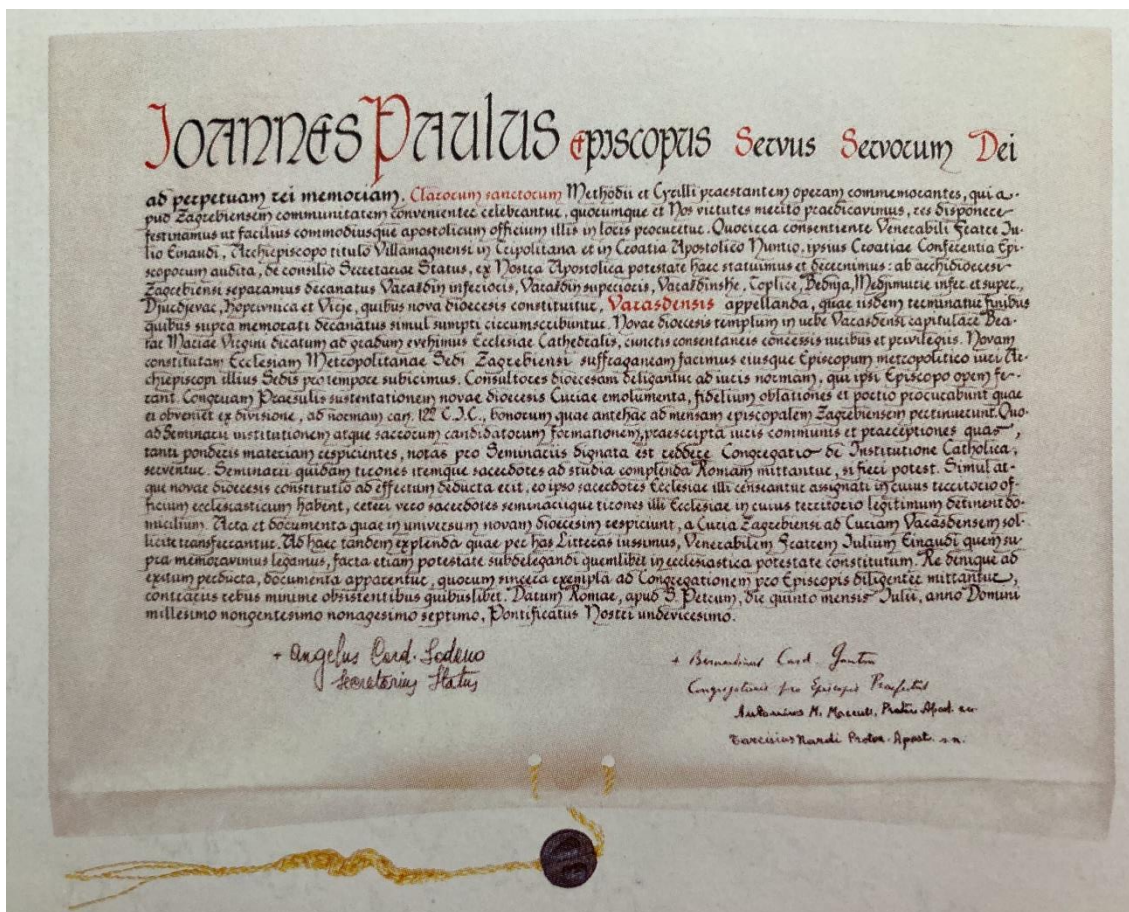 IOANNES PAULUS Episcopus Servus Servorum Dei
ad perpetuam rei memoriam. Clarorum sanctorum Methodii et Cyrilli praestantem operam commemorantes, qui a-
pud Zagrebiensem communitatem convenienter celebrantur, quorumque et Nos virtutes merito praedicavimus, res disponere
festinamus ut facilius commodiusque apostolicum officium illis in locis procuretur. Quocirca consentiente Venerabili Fratre Iu-
lio Einaudi, Archiepiscopo titulo Villamagnensi in Tripolitana et in Croatia Apostolico Nuntio, ipsius Croatiae Conferentia Epi-
scoporum audita, de consilio Secretariae Status, ex Nostra Apostolica potestate haec statuimus et decernimus: ab archidioecesi
Zagrebiensi separamus decanatus Varaždin inferioris, Varaždin superioris, Varaždinske Toplice, Bednja, Medjimurje infer. et super.,
Djurdjevac, Koprivnica et Virje, quibus nova dioecesis constituitur, Varasdensis appellanda, quae iisdem terminatur finibus
quibus supra memorati decanatus simul sumpti circumscribuntur. Novae dioecesis templum in urbe Varasdensi capitulare Bea-
tae Mariae Virgini dicatum ad gradum evehimus Ecclesiae Cathedralis, cunctis consentaneis concessis iuribus et privilegiis. Novam
constitutam Ecclesiam Metropolitanae Sedi Zagrebiensi suffraganeam facimus eiusque Episcopum metropolitico iuri Ar-
chiepiscopi illius Sedis pro tempore subicimus. Consultores dioecesani deligantur ad iuris normam, qui ipsi Episcopo opem fe-
rant. Congruam Praesulis sustentationem novae dioecesis Curiae emolumenta, fidelium oblationes et portio procurabunt quae
ei obveniet ex divisione, ad normam can. 122 C.I.C., bonorum quae antehac ad mensam episcopalem Zagrebiensem pertinuerunt. Quo
ad Seminarii institutionem atque sacrorum candidatorum formationem, praescripta iuris communis et praeceptiones quas,
tanti ponderis materiam respicientes, notas pro Seminariis dignata est reddere Congregatio de Institutione Catholica,
serventur. Seminarii quidam tirones itemque sacerdotes ad studia complenda Romam mittantur, si fieri potest. Simul at-
que novae dioecesis constitutio ad effectum deducta erit, eo ipso sacerdotes Ecclesiae illi censeantur assignati in cuius territorio of-
ficium ecclesiasticum habent, ceteri vero sacerdotes seminariique tirones illi Ecclesiae in cuius territorio legitimum detinent do-
micilium. Acta et documenta quae in universum novam dioecesim respiciunt, a Curia Zagrebiensi ad Curiam Varasdensem sol-
licite transferantur. Ad haec tandem explenda quae per has Litteras iussimus, Venerabilem Fratrem Iulium Einaudi quem su-
pra memoravimus legamus, facta etiam potestate subdelegandi quemlibet in ecclesiastica potestate constitutum. Re denique ad
exitum perducta, documenta apparentur, quorum sincera exempla ad Congregationem pro Episcopis diligenter mittantur,
contrariis rebus minime obsistentibus quibuslibet. Datum Romae, apud S. Petrum, die quinto mensis Iulii, anno Domini
millesimo nongentesimo nonagesimo septimo, Pontificatus Nostri undevicesimo.
+ Angelus Card. Sodano
Secretarius Status
+ Bernardinus Card. Gantin
Congregationis pro Episcopis Praefectus
Antonius M. Proton. Apost.
Tarcisius Nardi Proton. Apost. s.n.